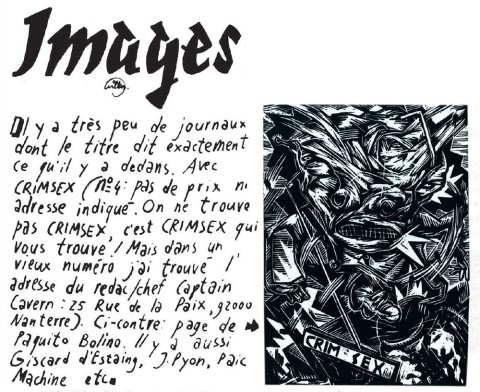 Images
Il y a très peu de journaux
dont le titre dit exactement
ce qu'il y a dedans. Avec
CRIMSEX (No4: pas de prix ni
adresse indiqué. On ne trouve
pas CRIMSEX, c'est CRIMSEX qui
vous trouve! Mais dans un
vieux numéro j'ai trouvé l'
adresse du redac/chef Captain
Cavern: 25 Rue de la Paix, 92000
Nanterre). Ci-contre: page de ➡
Paquito Bolino. Il y a aussi
Giscard d'Estaing, J.Pyon, Paic
Machine etc.
CRIM SEX